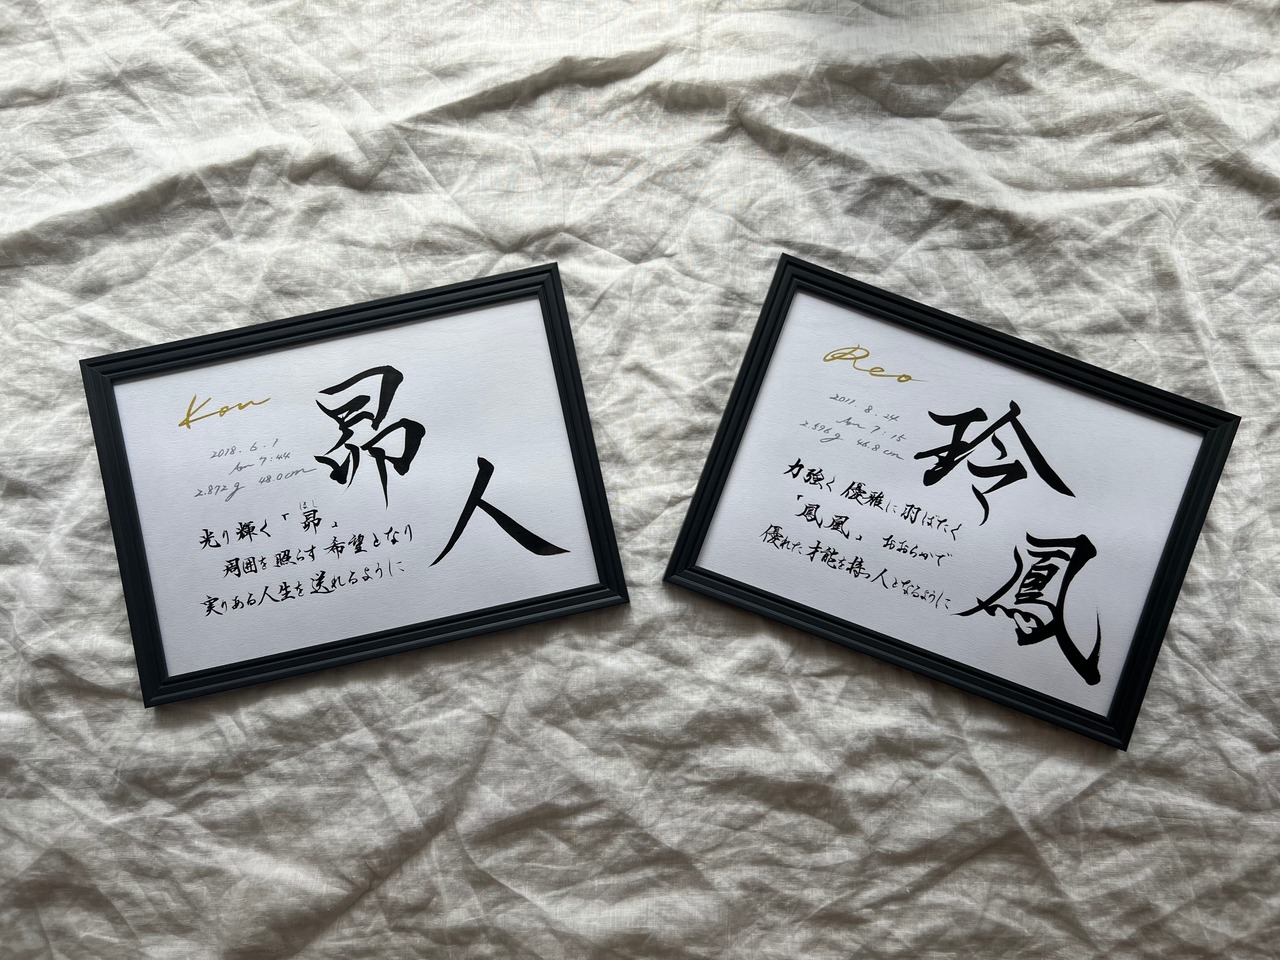 Kou
昴人
2018.6.1
Am 7:44
2.872g 48.0cm
光り輝く「昴」
ほし
周囲を照らす希望となり
実りある人生を送れるように
Reo
玲鳳
2011.8.24
Am 7:15
2.596g 46.8cm
力強く優雅に羽ばたく
「鳳凰」おおらかで
優れた才能を持つ人となるように